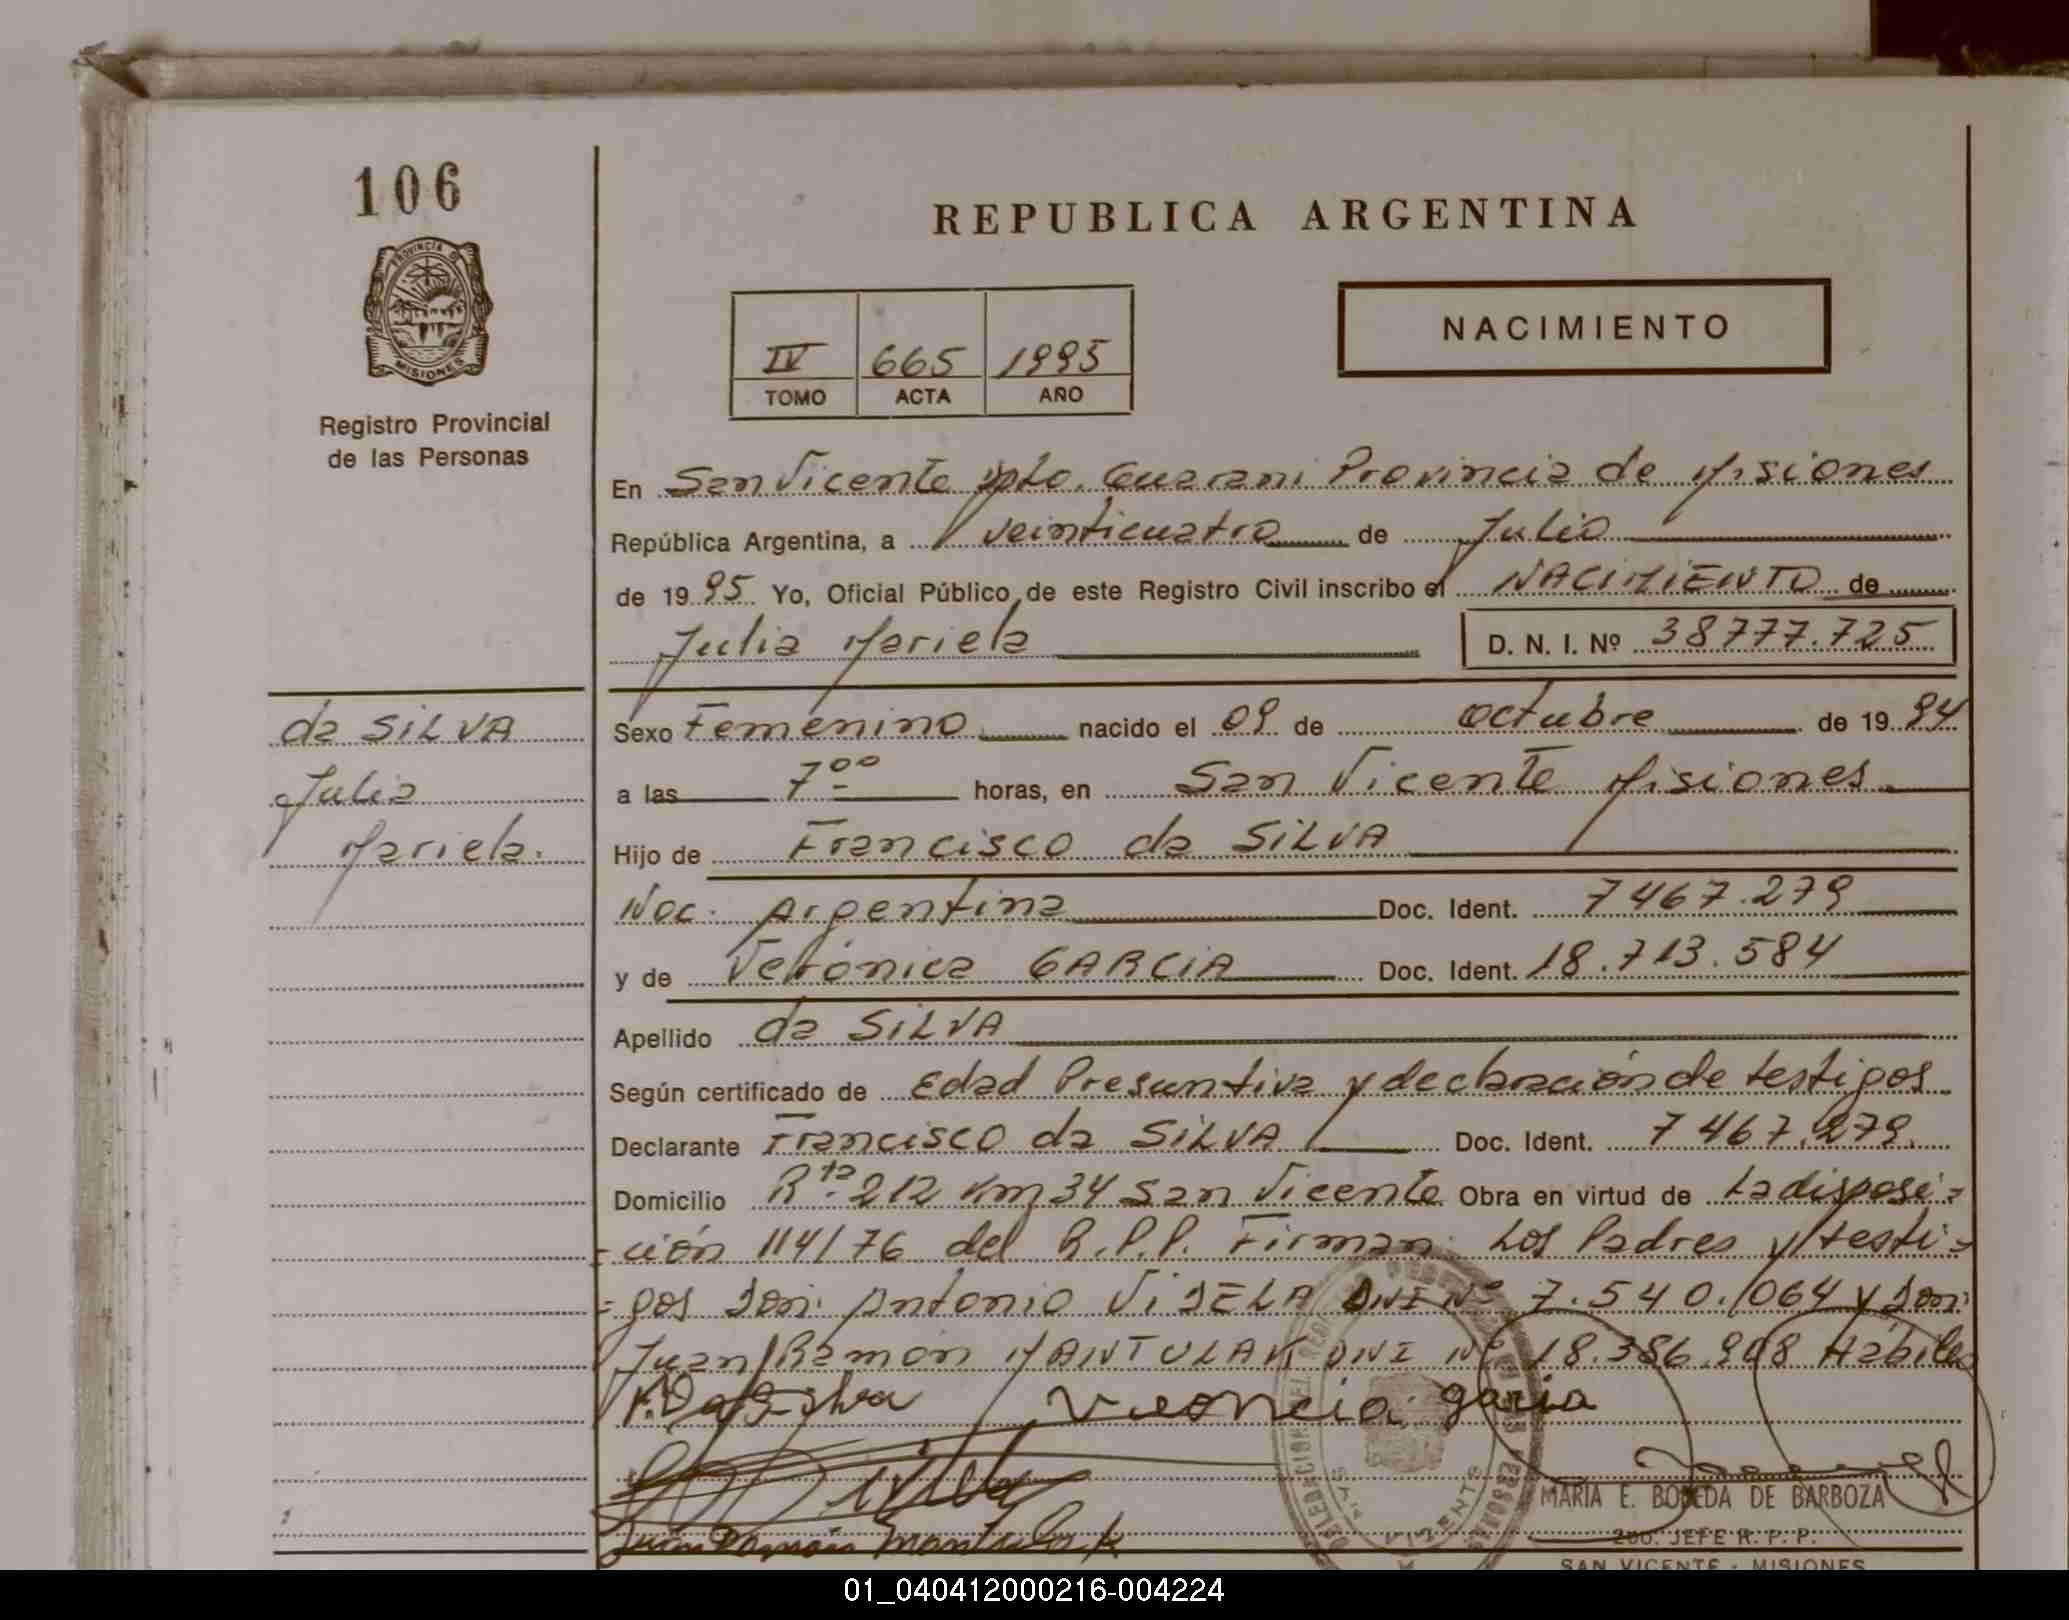 106
PROVINCIA DE
MISIONES
Registro Provincial
de las Personas
REPUBLICA ARGENTINA
IV 665 1995
TOMO ACTA AÑO
NACIMIENTO
En San Vicente Dpto. Guarani Provincia de Misiones
República Argentina, a veinticuatro de Julio
de 1995 Yo, Oficial Público de este Registro Civil inscribo el NACIMIENTO de
Julia Mariela D. N. I. Nº 38777.725
da SILVA
Julia
Mariela.
Sexo Femenino nacido el 09 de Octubre de 1994
a las 7⁰⁰ horas, en San Vicente Misiones
Hijo de Francisco da SILVA
Nac. Argentina Doc. Ident. 7467.279
y de Verónica GARCIA Doc. Ident. 18.713.584
Apellido da SILVA
Según certificado de Edad Presuntiva y declaración de testigos
Declarante Francisco da SILVA Doc. Ident. 7467.279.
Domicilio Rta. 212 Km 34 San Vicente Obra en virtud de La disposi=
=ción 114/76 del R.P.P. Firman: Los Padres y testi=
=gos Don: Antonio VIDELA DNI Nº 7.540.064 y Don:
Juan Ramón MANTULAK DNI Nº 18.386.908 Hábiles
F. Da Silva garia
Juan Ramón Mantulak
SAN VICENTE
MARIA E. BOVEDA DE BARBOZA
2do. JEFE R. P. P.
SAN VICENTE - MISIONES
01_040412000216-004224